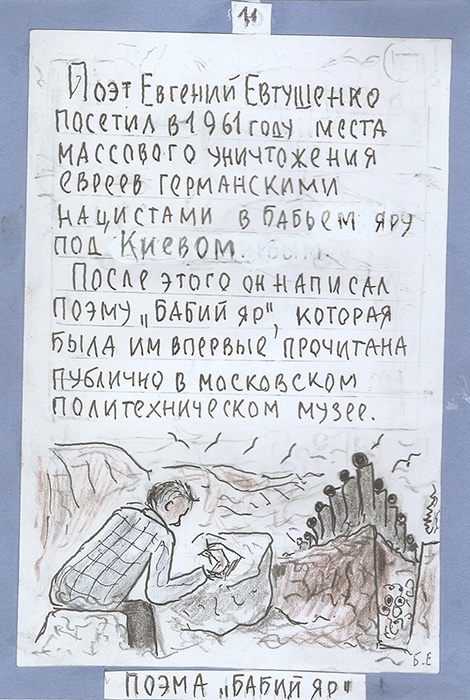 11
Поэт Евгений Евтушенко
посетил в 1961 году места
массового уничтожения
евреев германскими
нацистами в бабьем яру
под Киевом.
После этого он написал
поэму „Бабий яр", которая
была им впервые прочитана
публично в московском
политехническом музее.
Б.Е
поэма „Бабий яр"